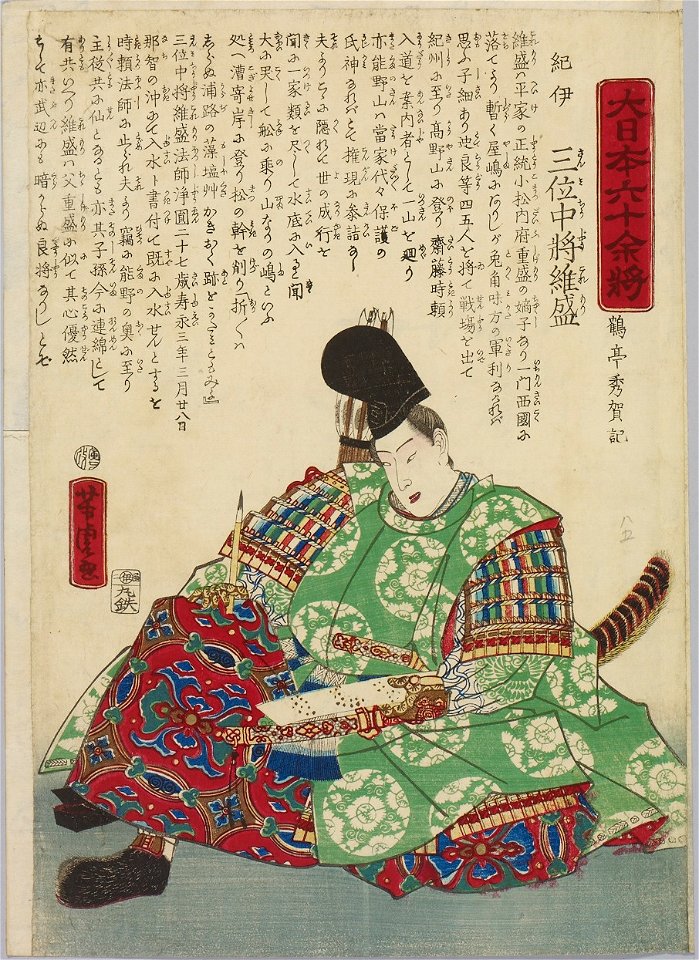 大日本六十余将
紀伊
三位中將維盛
鶴亭秀賀記
維盛ハ平家の正統小松内府重盛の嫡子なり一門西國に
落てより暫く屋嶋にありしが兎角味方の軍利あらねバ
思ふ子細あり 良等四五人を将て戦場を出て
紀州に至り髙野山に登り齋藤時頼
入道を案内者として一山を廻り
亦能野山ハ當家代々保護の
氏神なれバとて権現に参詣なし
夫よりこゝに隠れて世の成行を
聞に一家類を尽して水底に入ると聞
大に哭して舩に乗り山なりの嶋といふ
処へ漕寄岸に登り松の幹を削り
しらぬ浦路の藻塩艸かきおく跡をかたミともみよ』
三位中將維盛法師浄圓二十七歳寿永三年三月廿八日
那智の沖にて入水ト書付て既に入水せんとするを
時頼法師に止られ夫より竊に能野の奥に至り
主従共に仙となるとも亦其子孫今に連綿して
有共いへり維盛ハ父重盛に似て其心優然
として亦武辺にも暗からぬ良將なりしとぞ
芳虎画
丸鉄
八五